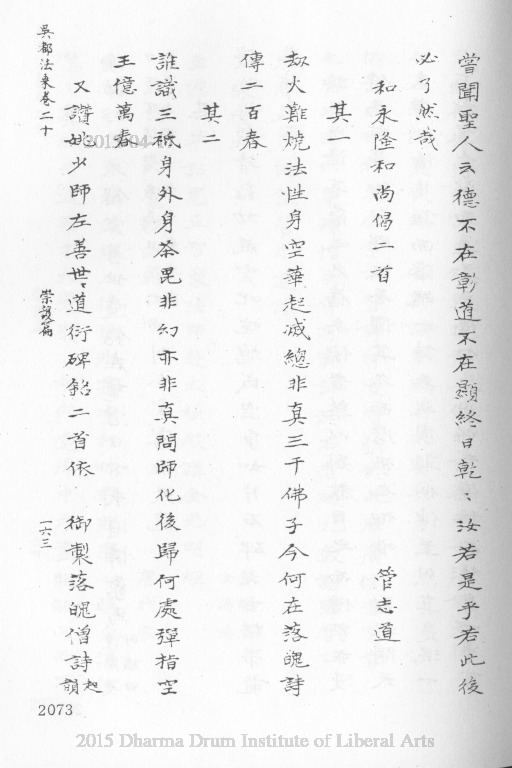 曾聞聖人云德不在彰道不在顯終日乾〻汝若是乎若此後
必了然哉
和永隆和尚偈二首　管志道
其一
劫火難燒法性身空華起滅總非真三千佛子今何在落魄詩
傳二百春
其二
誰識三祇身外身荼毘非幻亦非真問師化後歸何處彈指空
王億萬春
又讚少師左善世〻道衍碑銘二首依　御製落魄僧詩起韻
吳都法乘卷二十　一六三
2073
2015 Dharma Drum Institute of Liberal Arts